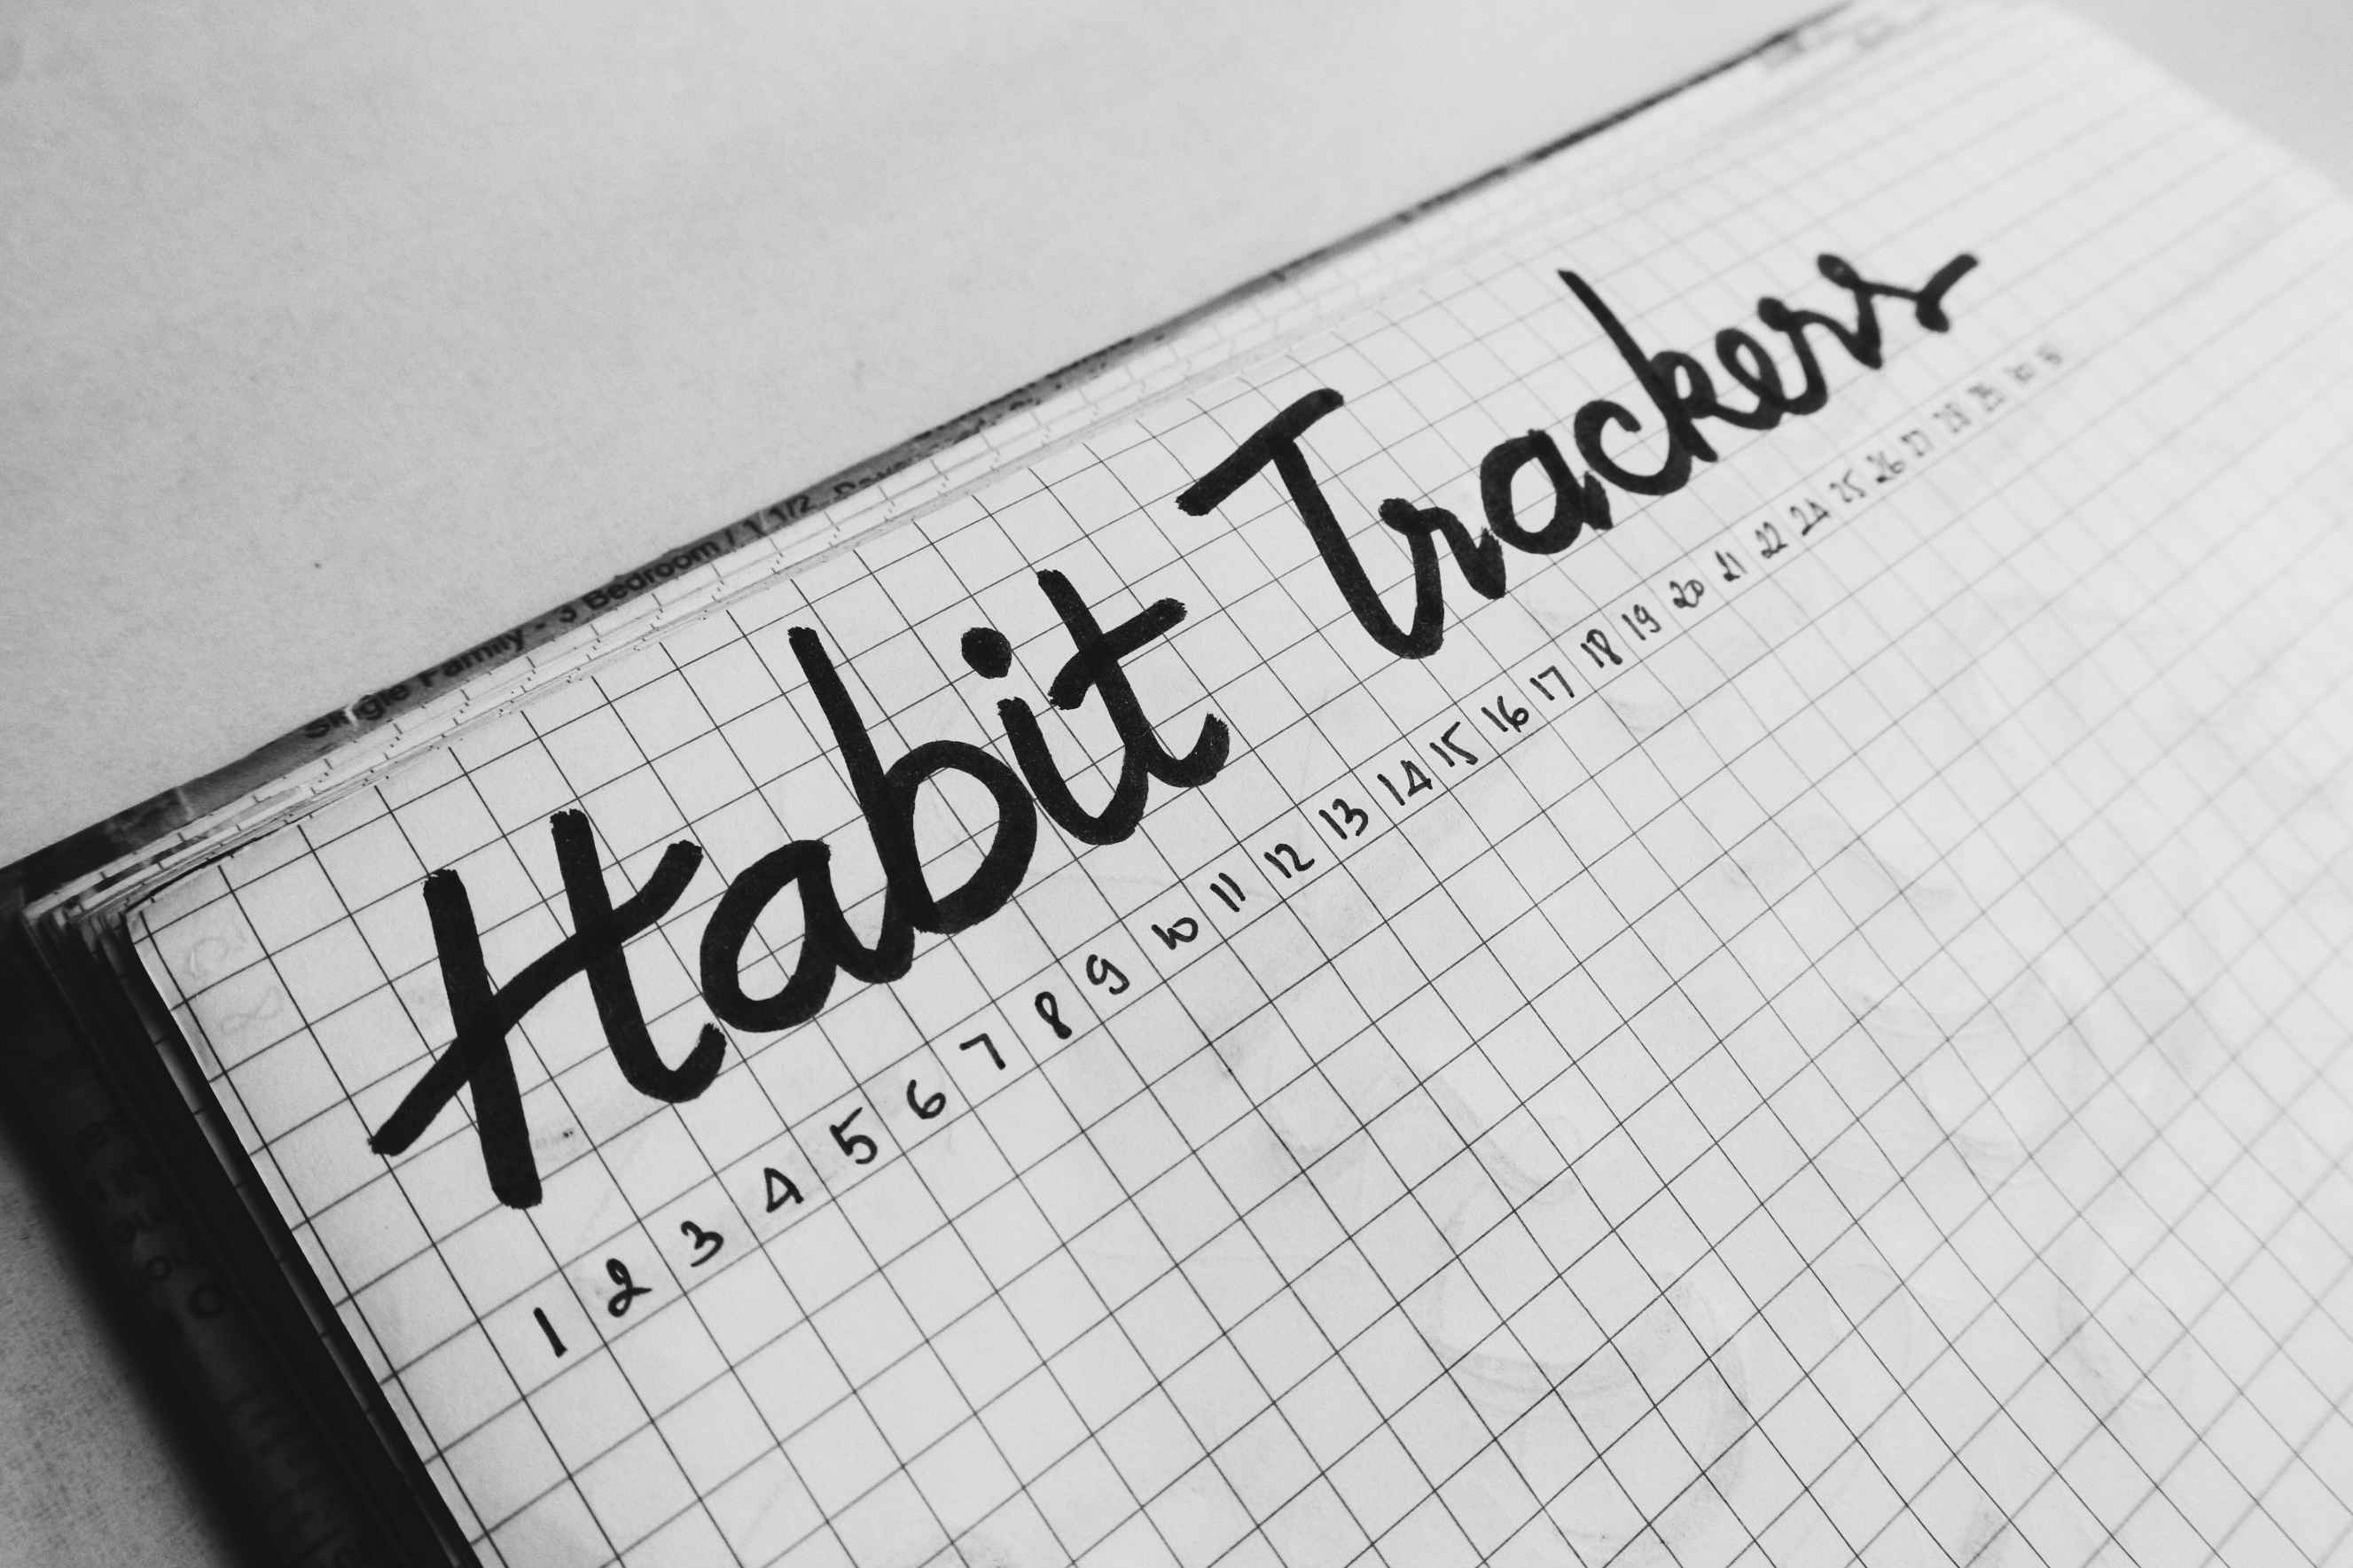 Single Family - 3 Bedroom / 1 1/2
Habit Trackers
1 2 3 4 5 6 7 8 9 10 11 12 13 14 15 16 17 18 19 20 21 22 24 25 26 27 28